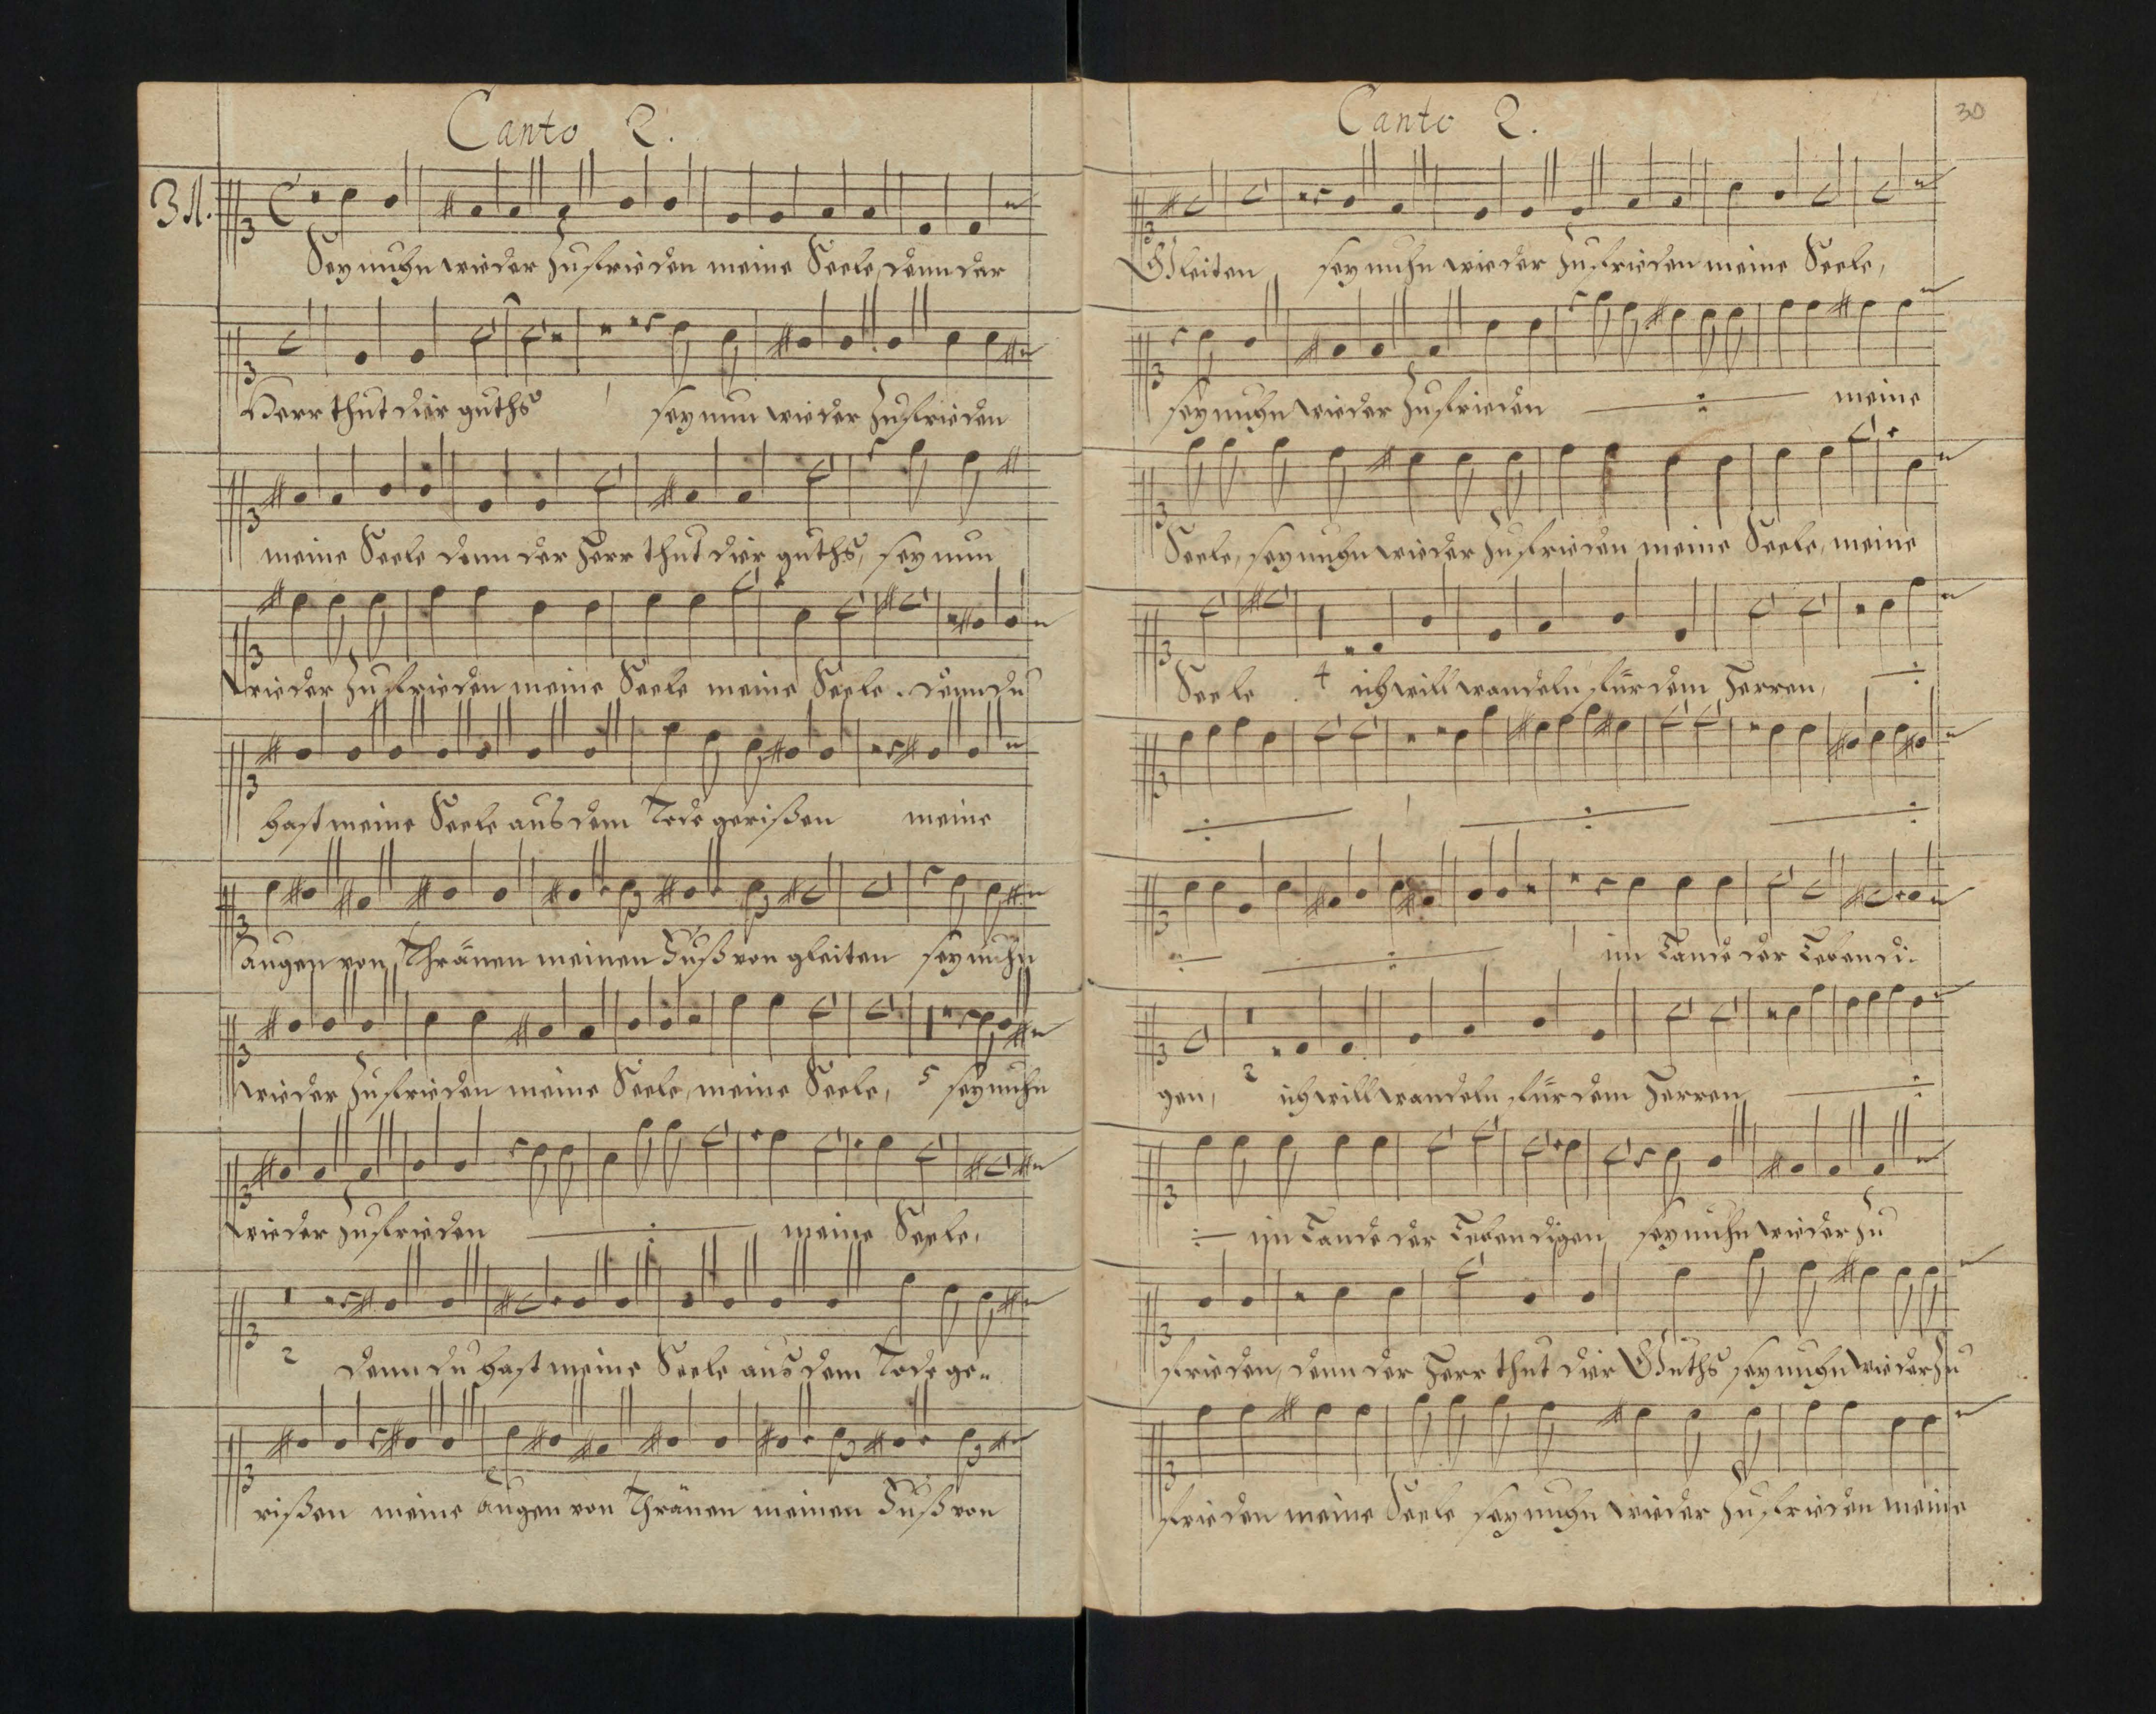 Canto 2.
31.
Sey nuhn wieder zufrieden meine Seele, denn der
Herr thut dir guths sey nun wieder zufrieden
meine Seele denn der Herr thut dir guths, sey nun
wieder zufrieden meine Seele meine Seele. denn du
hast meine Seele aus dem Tode gerißen meine
augen von Thränen meinen Fuß von gleiten sey nuhn
wieder zufrieden meine Seele, meine Seele, 5 sey nuhn
wieder zufrieden ÷ meine Seele,
2 denn du hast meine Seele aus dem Tode ge-
rißen meine augen von Thränen meinen Fuß von
Canto 2.
30
Gleiten sey nuhn wieder zufrieden meine Seele,
sey nuhn wieder zufrieden ÷ meine
Seele, sey nuhn wieder zufrieden meine Seele, meine
Seele. 4 ich will wandeln für dem Herren, ÷
÷ ÷ ÷
÷ ÷ im Lande der Lebendi-
gen, 2 ich will wandeln für dem Herren ÷
÷ im Lande der Lebendigen sey nuhn wieder zu
frieden, denn der Herr thut dir Guths sey nuhn wieder zu
frieden meine Seele sey nuhn wieder zufrieden meine